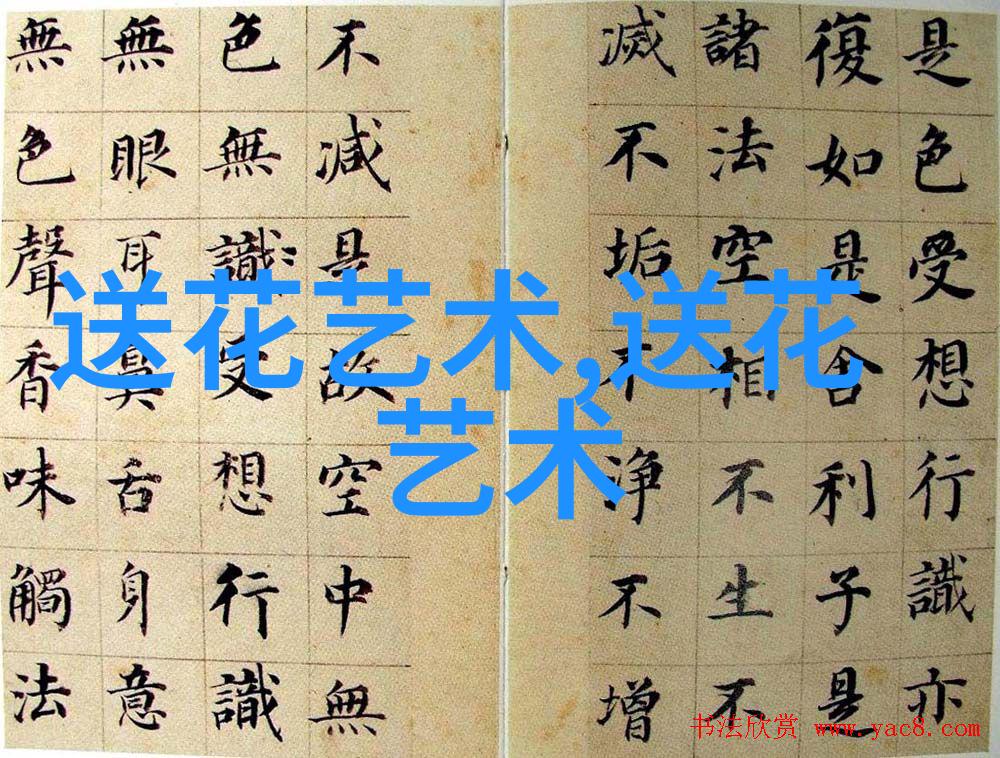 是色受想行識亦
復如是舍利子是
諸法空相不生不
滅不垢不淨不增
不減是故空中無
色無識受想行識
無眼耳鼻舌身意
無色聲香味觸法
送花艺术,送花
艺术
书法欣赏 www.yac8.com